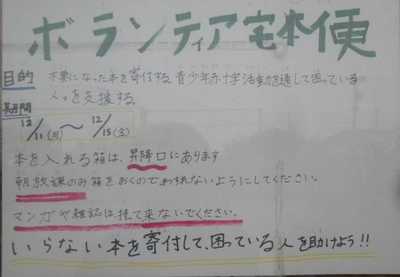 ボランティア宅本便
目的 不要になった本を寄付する。青少年赤十字活動を通して困っている
人々を支援する
期間
12/11(月)〜12/15(金)
本を入れる箱は、昇降口にあります
朝放課のみ箱をおくのでわすれないようにしてください。
マンガや雑誌は持って来ないでください。
いらない本を寄付して、困っている人を助けよう!!